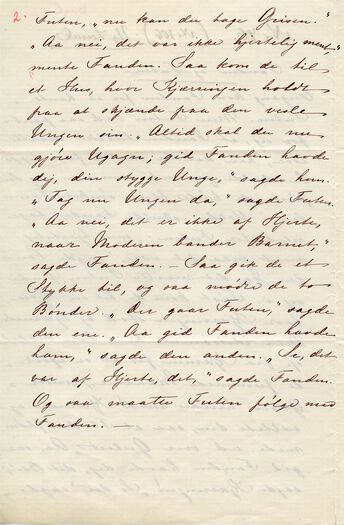 2.
Futen, "nu kan du tage Grisen."
"Aa nei, det var ikke hjertelig ment,"
mente Fanden. Saa kom de til
et Hus, hvor Kjærringen holdt
paa at skjænde paa den vesle
Ungen sin. "Altid skal du nu
gjöre Ugagn; gid Fanden havde
dig, din stygge Unge," sagde hun.
"Tag nu Ungen da," sagde Futen.
"Aa nei, det er ikke af Hjerte,
naar Moderen bander Barnet,"
sagde Fanden. — Saa gik de et
Stykke til, og saa mødte de to
Bønder. "Der gaar Futen," sagde
den ene. "Aa gid Fanden havde
ham," sagde den anden. "Se, det
var af Hjerte, det," sagde Fanden.
Og saa maatte Futen følge med
Fanden. —